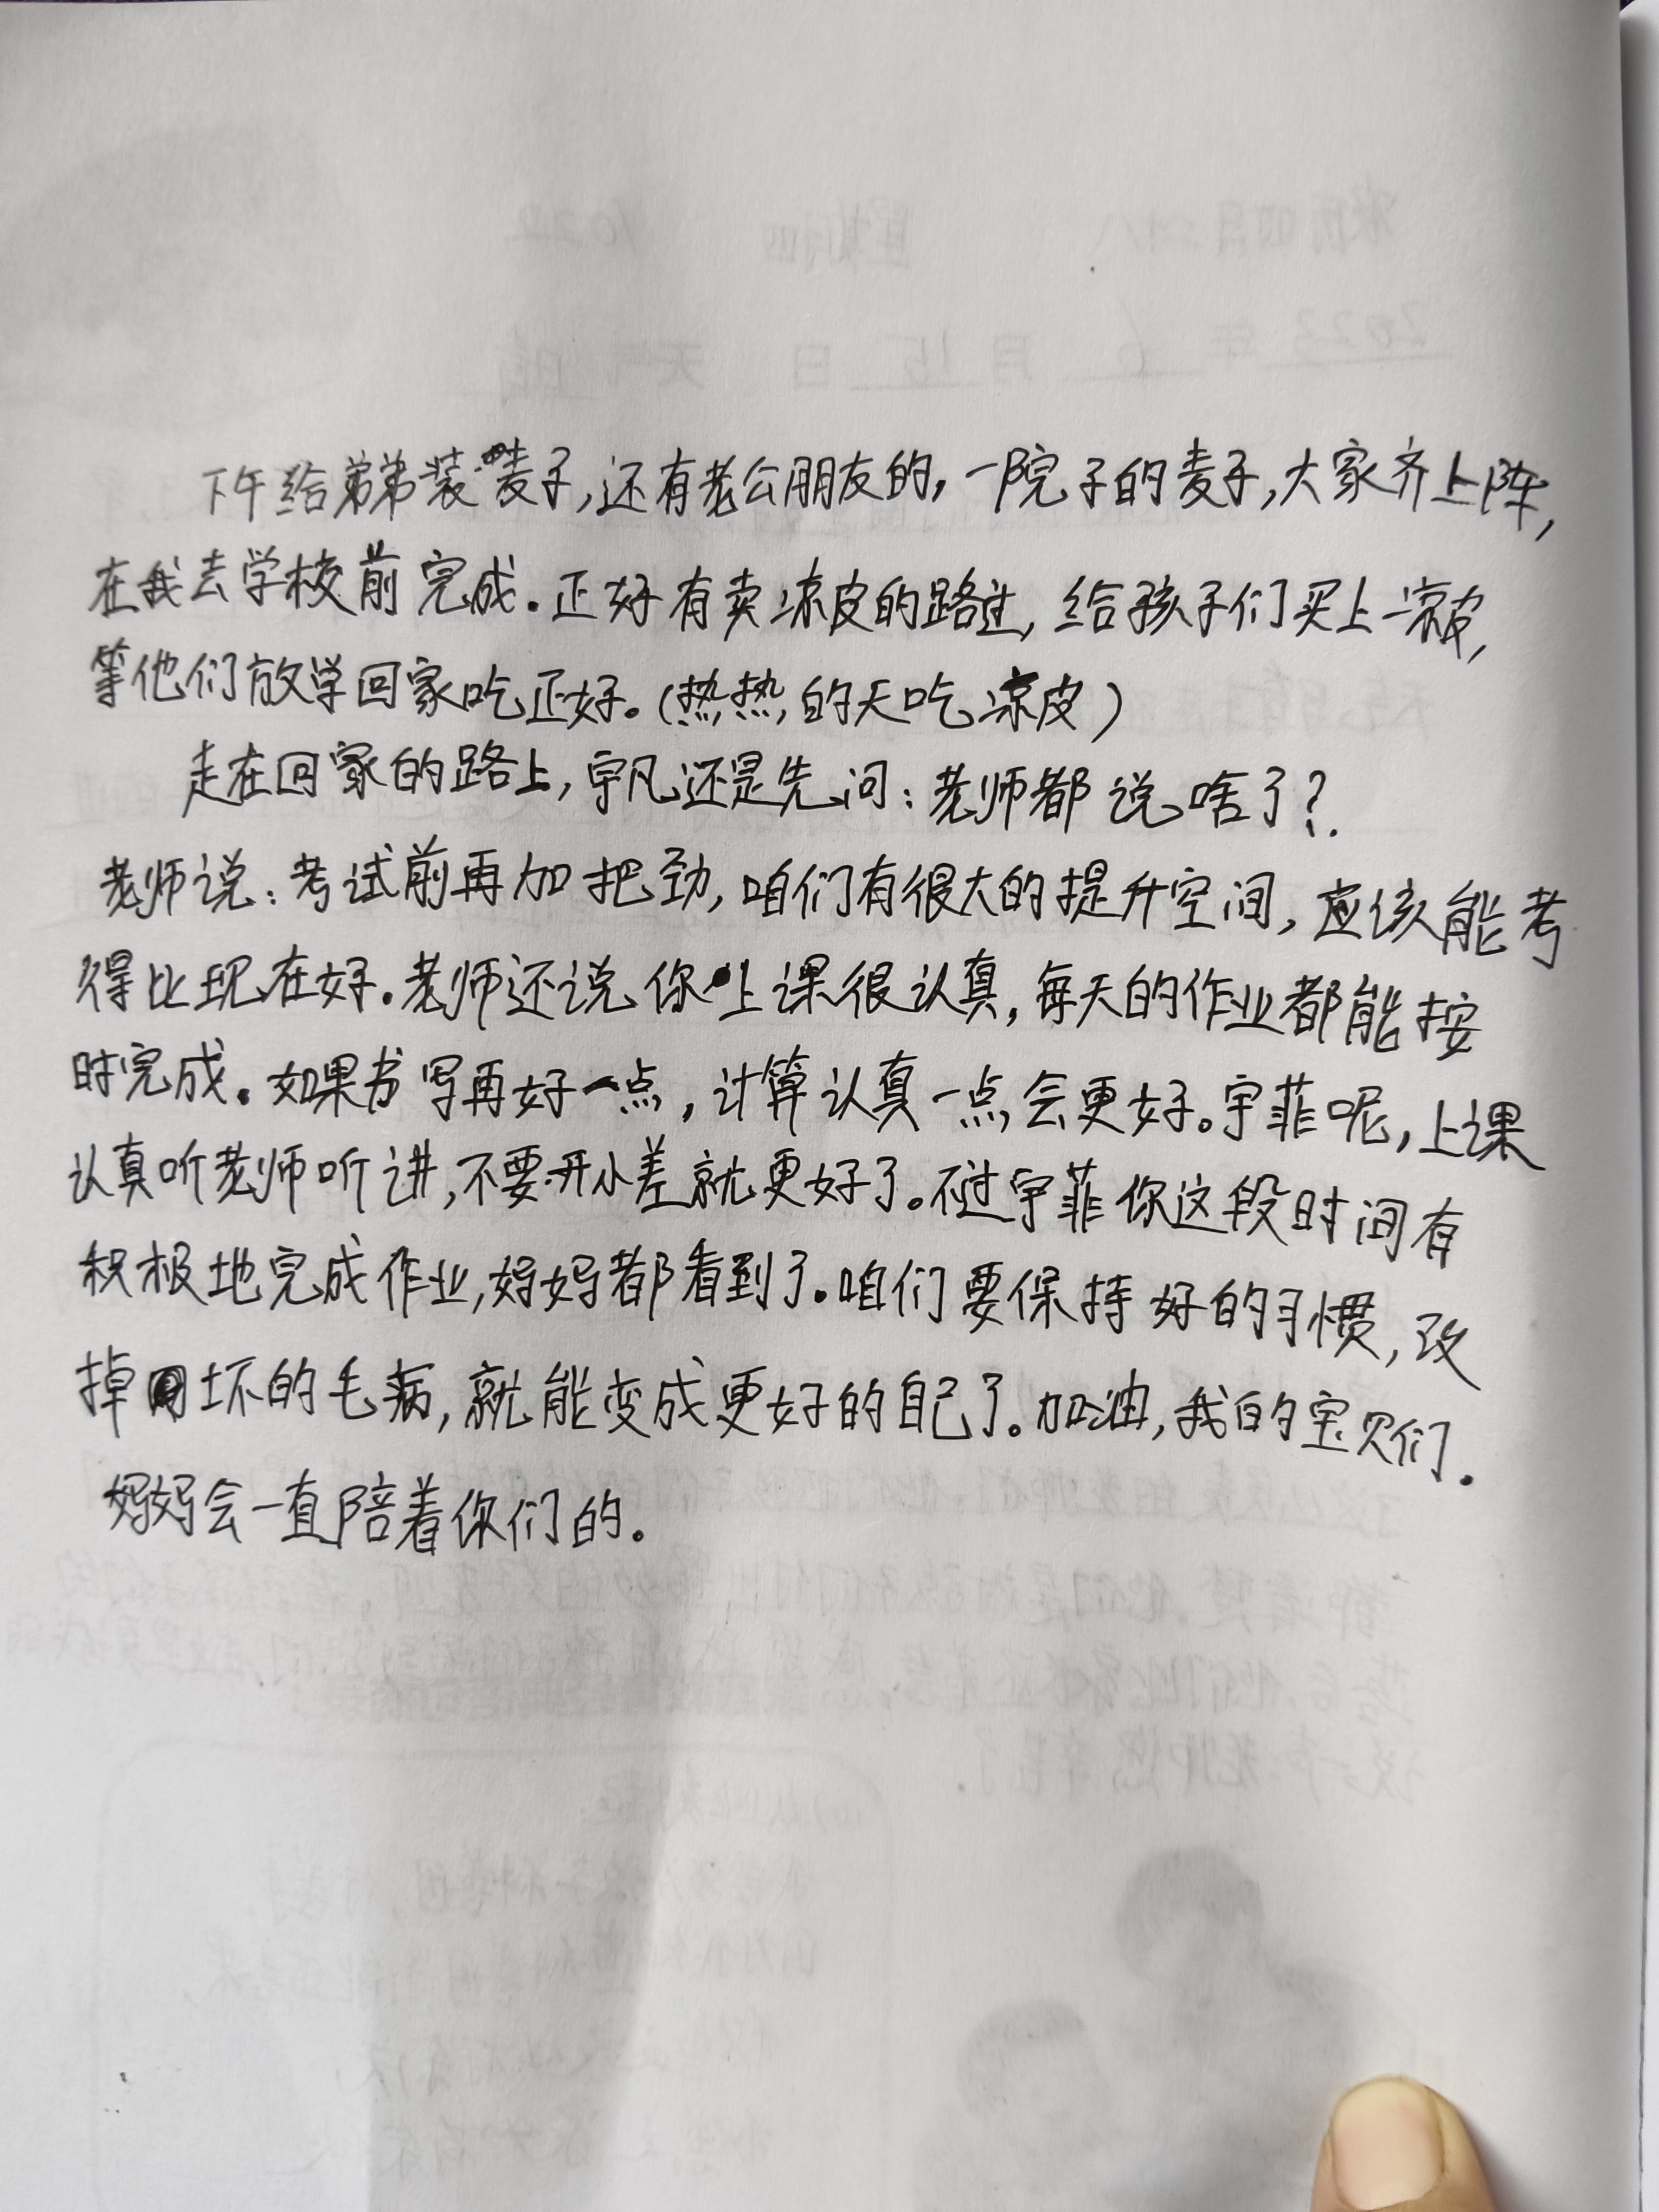 下午给弟弟装麦子,还有老公朋友的,一院子的麦子,大家齐上阵,
在我去学校前完成.正好有卖凉皮的路过,给孩子们买上凉皮,
等他们放学回家吃正好。(热热的天吃凉皮)
走在回家的路上,宇凡还是先问:老师都说啥了?
老师说:考试前再加把劲,咱们有很大的提升空间,应该能考
得比现在好.老师还说你上课很认真,每天的作业都能按
时完成。如果书写再好一点,计算认真一点会更好。宇菲呢,上课
认真听老师听讲,不要开小差就更好了。不过宇菲你这段时间有
积极地完成作业,妈妈都看到了.咱们要保持好的习惯,改
掉坏的毛病,就能变成更好的自己了。加油,我的宝贝们.
妈妈会一直陪着你们的。